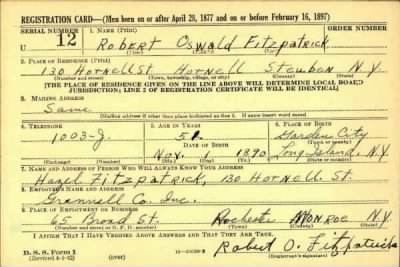 REGISTRATION CARD—(Men born on or after April 28, 1877 and on or before February 16, 1897)
SERIAL NUMBER 1. NAME (Print) ORDER NUMBER
U 12 ROBERT OSWALD FITZPATRICK
(First) (Middle) (Last)
2. PLACE OF RESIDENCE (Print)
130 HORNELL ST HORNELL STEUBEN N.Y.
(Number and street) (Town, township, village, or city) (County) (State)
[THE PLACE OF RESIDENCE GIVEN ON THE LINE ABOVE WILL DETERMINE LOCAL BOARD
JURISDICTION; LINE 2 OF REGISTRATION CERTIFICATE WILL BE IDENTICAL]
3. MAILING ADDRESS
Same
[Mailing address if other than place indicated on line 2. If same insert word same]
4. TELEPHONE 5. AGE IN YEARS 6. PLACE OF BIRTH
1003-J. 51 Garden City
DATE OF BIRTH (Town or county)
Nov. 1890 Long Island, N.Y.
(Exchange) (Number) (Mo.) (Day) (Yr.) (State or country)
7. NAME AND ADDRESS OF PERSON WHO WILL ALWAYS KNOW YOUR ADDRESS
Hazel Fitzpatrick, 130 Hornell St.
8. EMPLOYER'S NAME AND ADDRESS
Grannell Co. Inc.
9. PLACE OF EMPLOYMENT OR BUSINESS
65 Broad St. Rochester MONROE N.Y.
(Number and street or R. F. D. number) (Town) (County) (State)
I AFFIRM THAT I HAVE VERIFIED ABOVE ANSWERS AND THAT THEY ARE TRUE.
D. S. S. Form 1
(Revised 4-1-42) (over) Robert O. Fitzpatrick
(Registrant's signature)